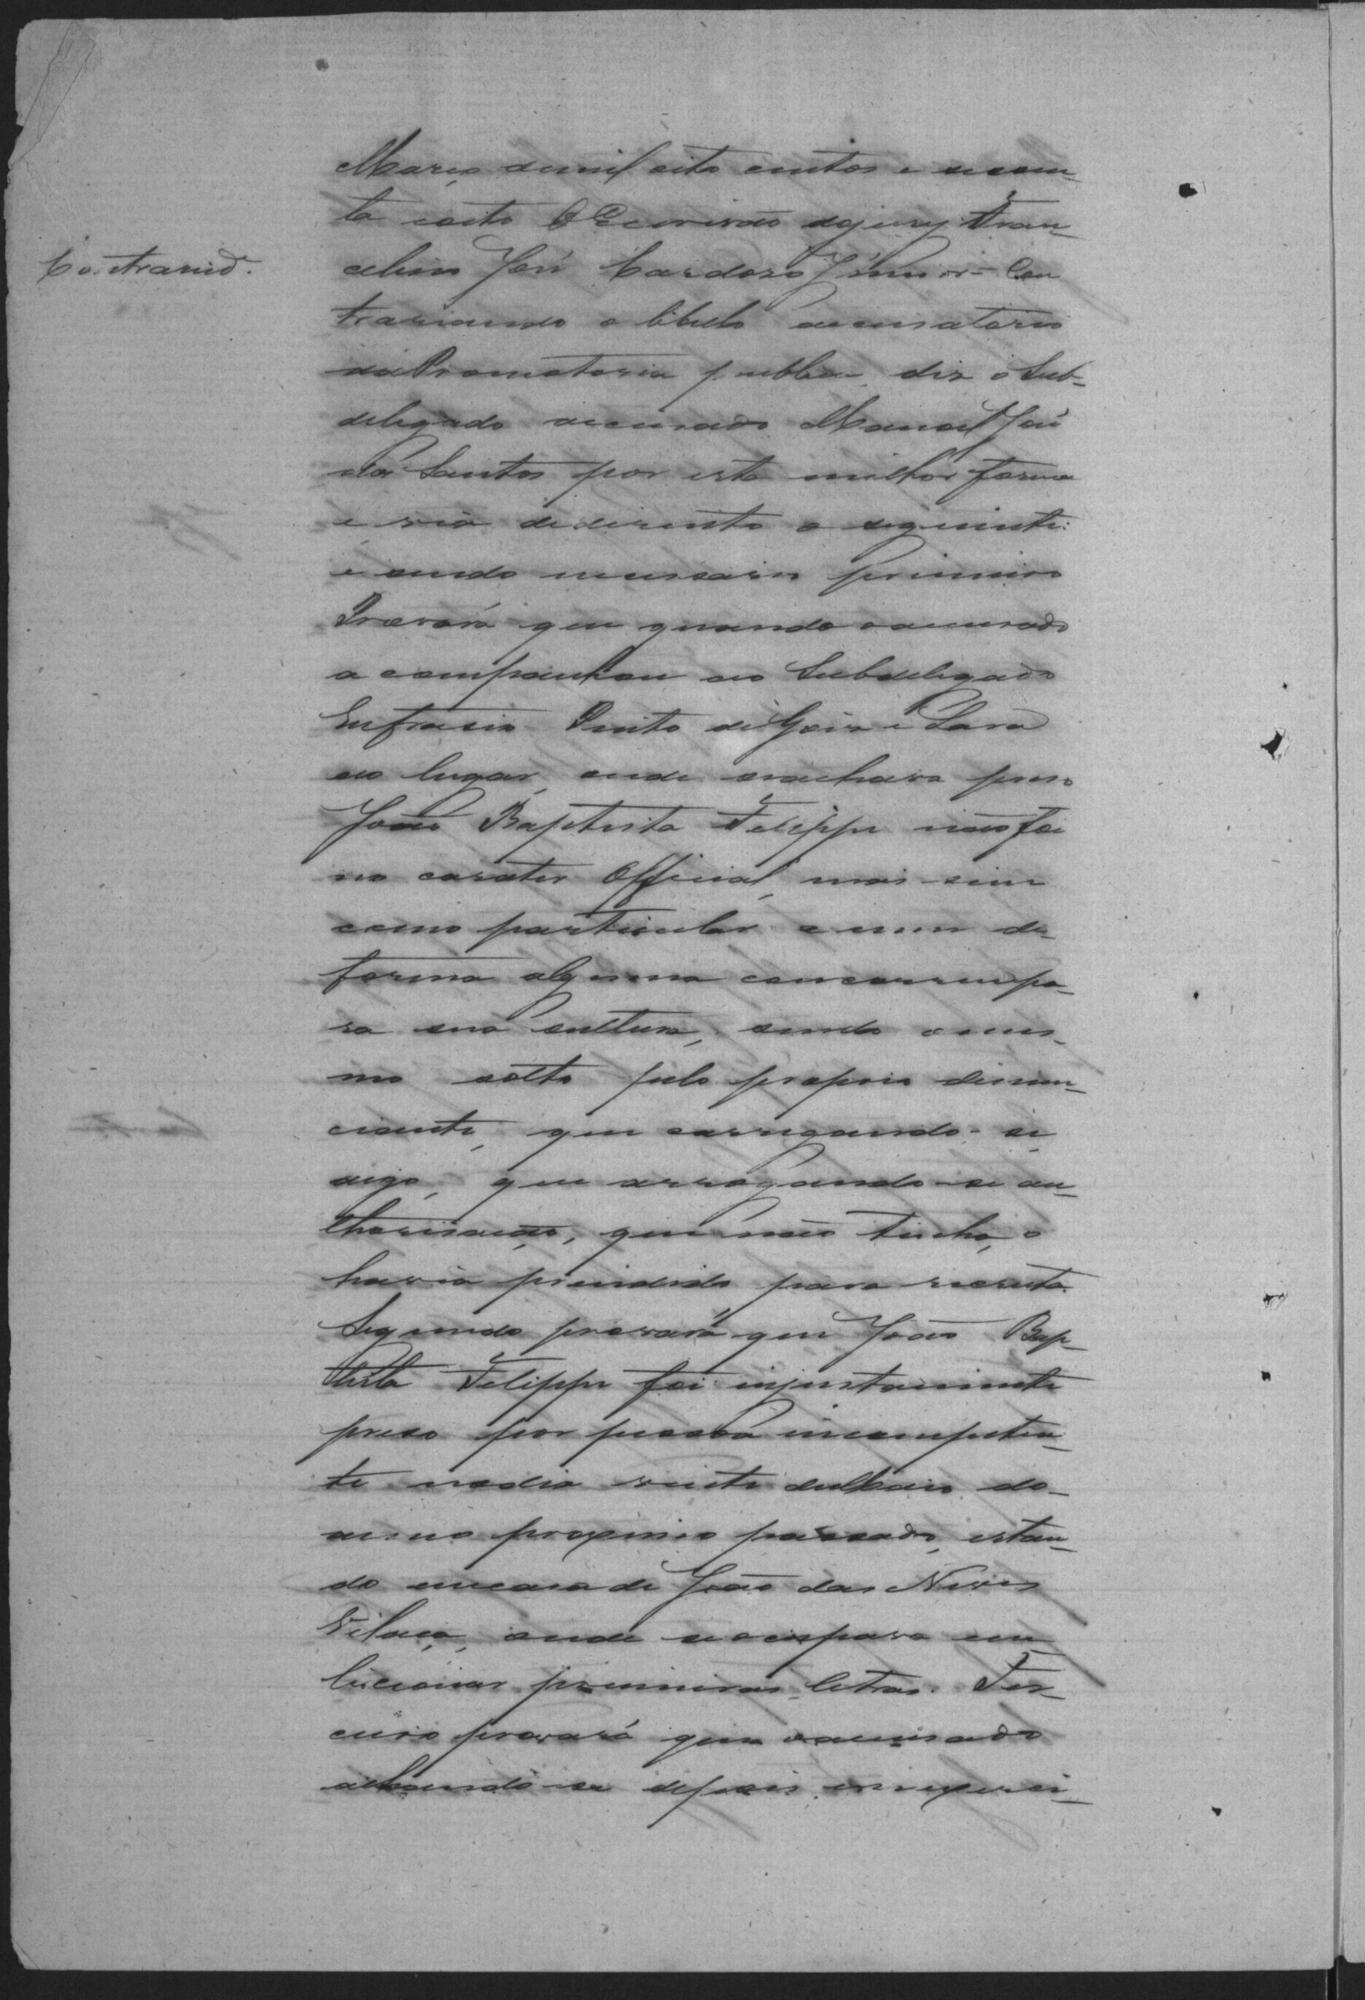 Março de mil oito centos e sessen-
ta e oito O Escrivão do jury Fran-
Contraried.
celino José Cardoso Junior - Con
trariando o libelo accusatorio
da Promotoria publica, diz o Sub-
delegado accusado Manoel José
dos Santos por esta milhor forma
e via de direito o seguinte:
e sendo necessario primeiro
Provará que quando o accusado
acompanhou ao Subdelegado
Eufrasio Pinto de Góis e Lara
ao lugar, onde se achava preso
João Baptista Felippe não foi
no carater Official, mas sim
como particular e nem de
forma alguma concorreu pa-
ra sua soltura, sendo o mes-
mo solto pelo proprio denun-
ciante, que carregando-se
digo, que arrogando-se au-
thorisação, que não tinha, o
havia prendido para recruta.
Segundo provará que João Bap-
tista Felippe foi injustamente
preso por pessoa incompeten-
te no dia vinte de Maio do
anno proximo passado, estan-
do em casa de João das Neves
Vilaça, onde se occupava em
lecionar primeiras letras. Ter-
ceiro provará que o accusado
achando-se depois em exerci-